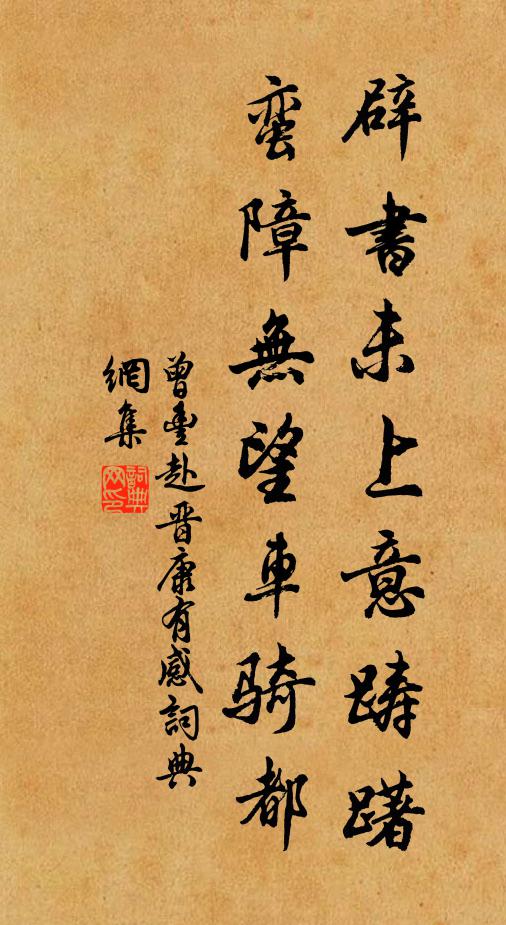 辟書未上意踌躇
蛮障無望車骑都
曾豊赴晋康有感詞典
網集
詞典
网印